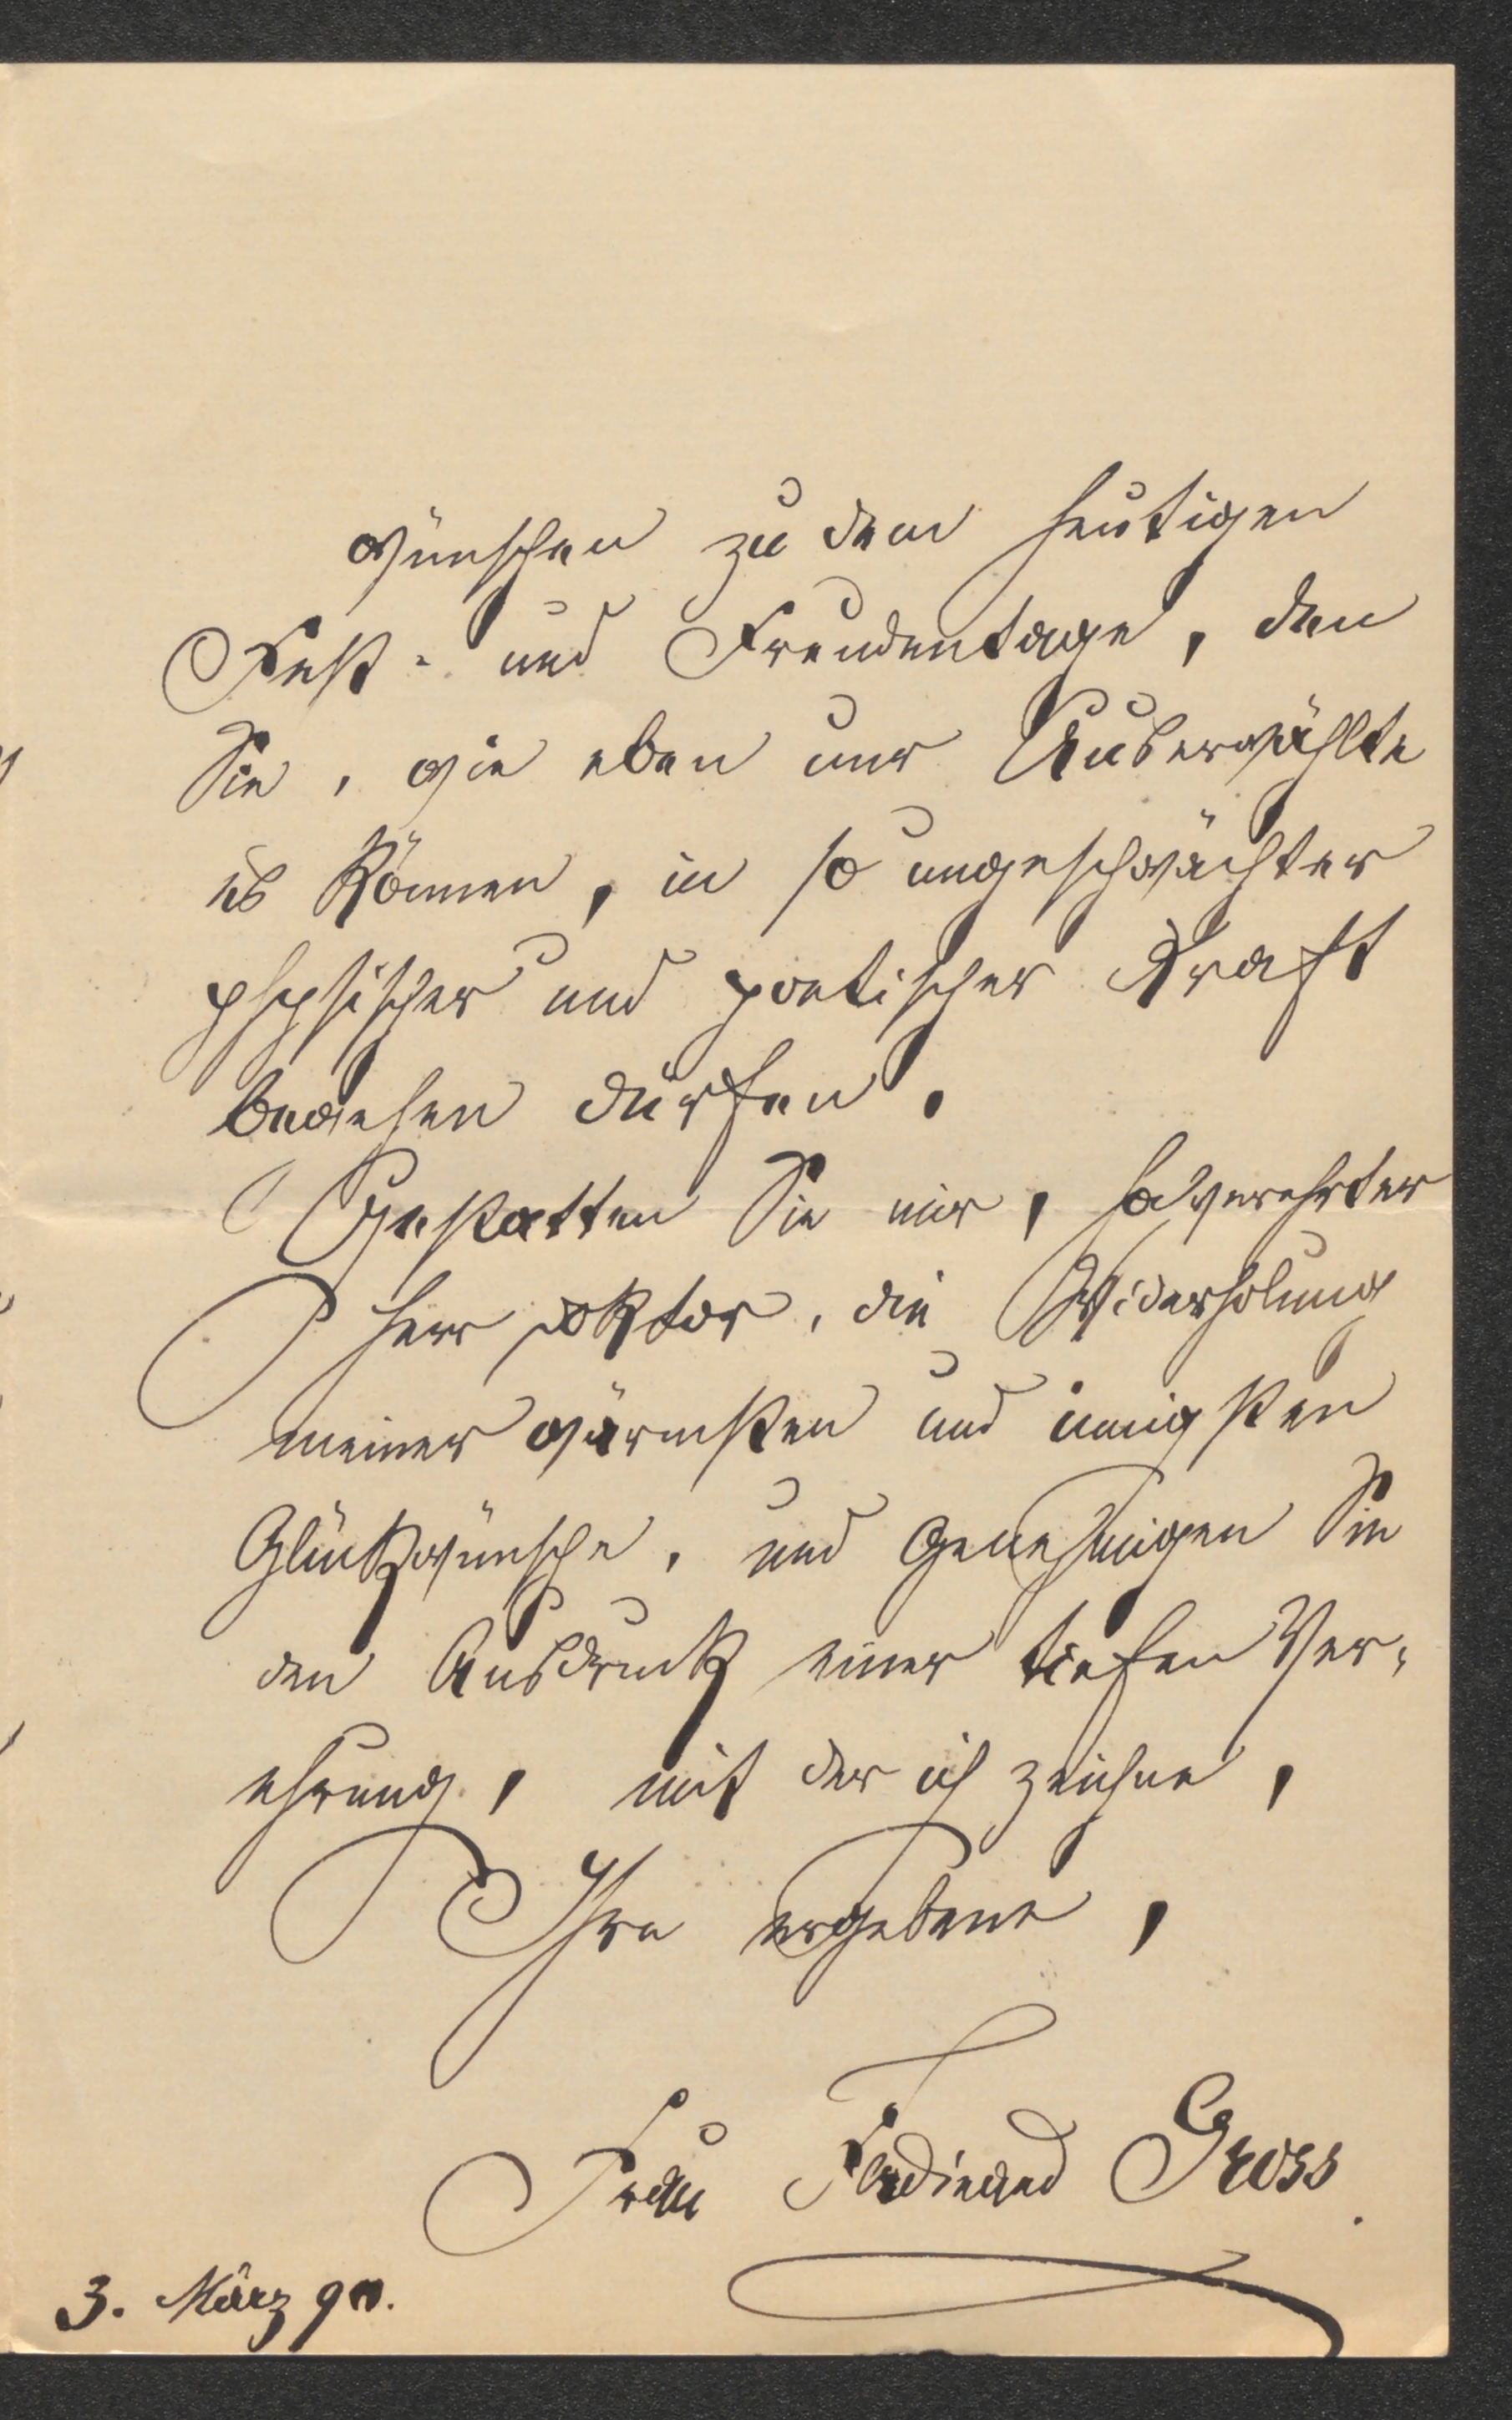 wünschen zu dem heutigen
Fest- und Freudentage, den
Sie, wie eben nur Auserwählte
es können, in so ungeschwächter
physischer und poetischer Kraft
begehen dürfen.
Gestatten Sie mir, hochverehrter
Herr Doktor, die Widerholung
meiner wärmsten und innigsten
Glückwünsche, und genehmigen Sie
den Ausdruck einer tiefen Ver-
ehrung, mit der ich zeichne,
Ihre ergebene,
Frau Ferdinand Gross.
3. März 90.